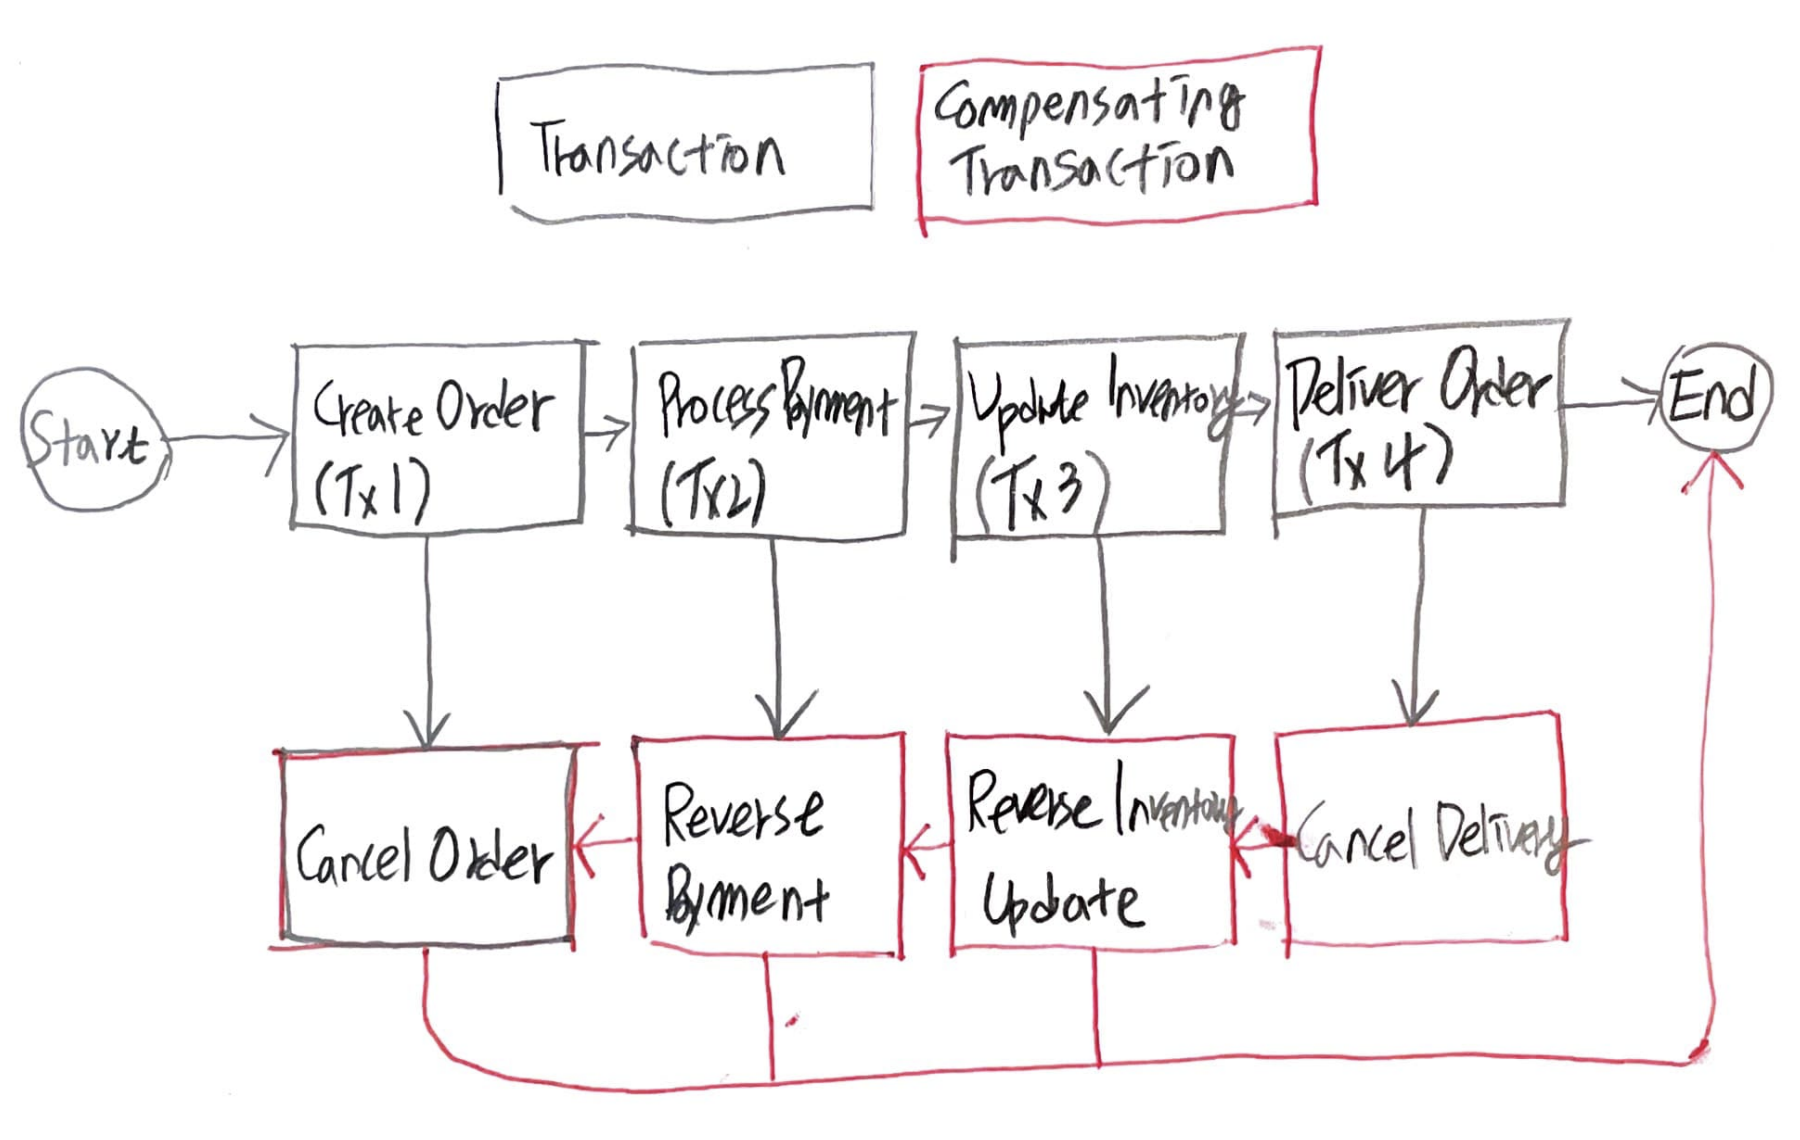 Transaction
Compensating
Transaction
Start
Create Order
(Tx1)
Process Payment
(Tx2)
Update Inventory
(Tx3)
Deliver Order
(Tx4)
End
Cancel Order
Reverse
Payment
Reverse Inventory
Update
Cancel Delivery